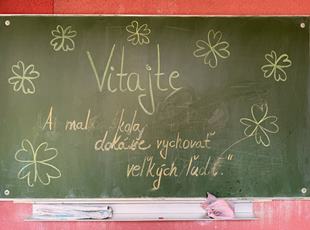 Vitajte
A malá škola
dokáže vychovať
veľkých ľudí."